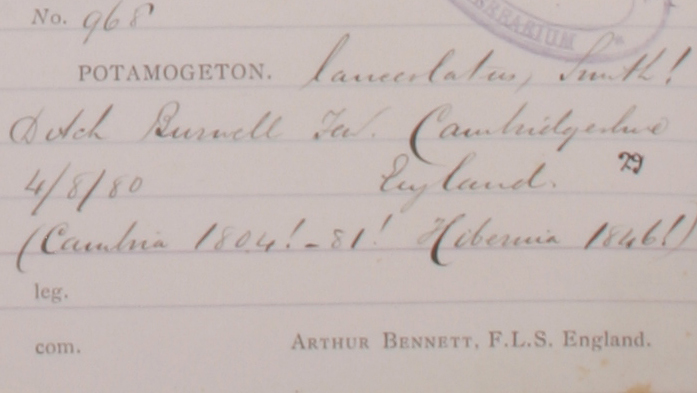 No. 968
HERBARIUM
POTAMOGETON. lanceolatus, Smith!
Ditch Burwell Fen. Cambridgeshire
4/8/80 England. 29
(Cambria 1804!-81! Hibernia 1846!)
leg.
com. ARTHUR BENNETT, F.L.S. England.